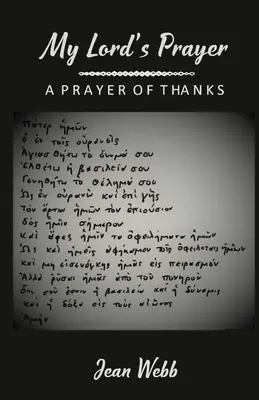 My Lord's Prayer
A PRAYER OF THANKS
Πάτερ ἡμῶν
ὁ ἐν τοῖς οὐρανοῖς
Ἁγιασθήτω τὸ ὄνομά σου
Ἐλθέτω ἡ βασιλεία σου
Γενηθήτω τὸ θέλημα σου
Ὡς ἐν οὐρανῷ καὶ ἐπὶ γῆς
Τὸν ἄρτον ἡμῶν τὸν ἐπιούσιον
δὸς ἡμῖν σήμερον
Καὶ ἄφες ἡμῖν τὰ ὀφειλήματα ἡμῶν
Ὡς καὶ ἡμεῖς ἀφήκαμεν τοῖς ὀφειλέταις ἡμῶν
Καὶ μὴ εἰσενέγκῃς ἡμᾶς εἰς πειρασμόν
Ἀλλὰ ῥῦσαι ἡμᾶς ἀπὸ τοῦ πονηροῦ
Ὅτι σοῦ ἐστιν ἡ βασιλεία καὶ ἡ δύναμις
καὶ ἡ δόξα εἰς τοὺς αἰῶνας
Ἀμήν
Jean Webb